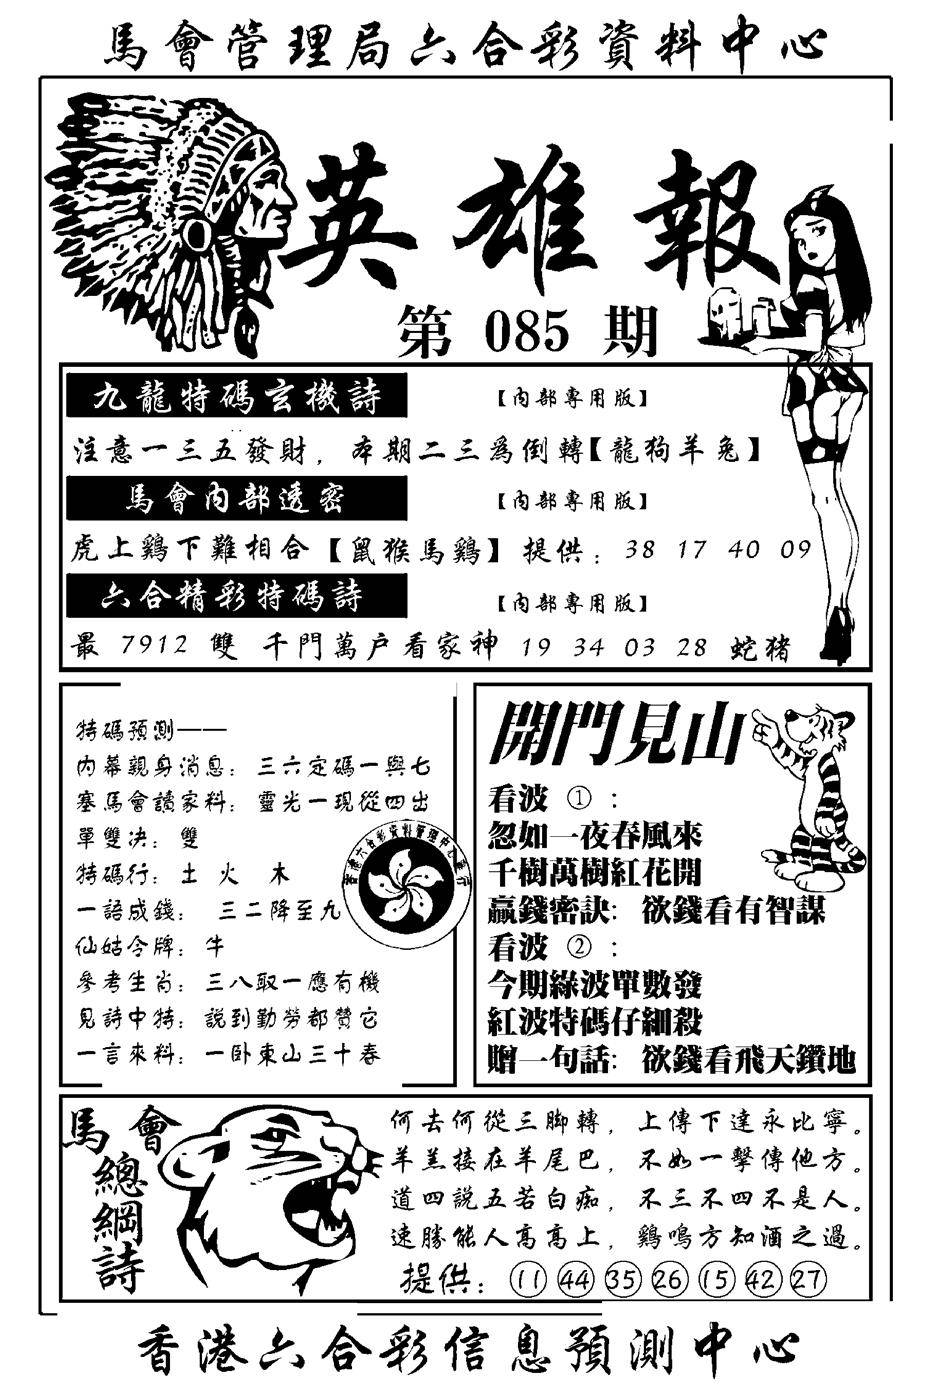 馬會管理局六合彩資料中心
英雄報
第 085 期
九龍特碼玄機詩 【內部專用版】
注意一三五發財，本期二三為倒轉【龍狗羊兔】
馬會內部透密 【內部專用版】
虎上鷄下難相合【鼠猴馬鷄】提供：38 17 40 09
六合精彩特碼詩 【內部專用版】
最 7912 雙 千門萬户看家神 19 34 03 28 蛇猪
特碼預測——
內幕親身消息：三六定碼一與七
塞馬會讀家料：靈光一現從四出
單雙决：雙
特碼行：土 火 木
一語成錢：三二降至九
仙姑令牌：牛
參考生肖：三八取一應有機
見詩中特：説到勤勞都贊它
一言來料：一卧東山三十春
開門見山
看波 ①：
忽如一夜春風來
千樹萬樹紅花開
贏錢密訣：欲錢看有智謀
看波 ②：
今期綠波單數發
紅波特碼仔細殺
贈一句話：欲錢看飛天鑽地
馬會
總綱詩
何去何從三脚轉，上傳下達永比寧。
羊羔接在羊尾巴，不如一擊傳他方。
道四説五若白痴，不三不四不是人。
速勝能人高高上，鷄鳴方知酒之過。
提供：⑪ ㊹ ㉟ ㉖ ⑮ ㊷ ㉗
香港六合彩信息預測中心